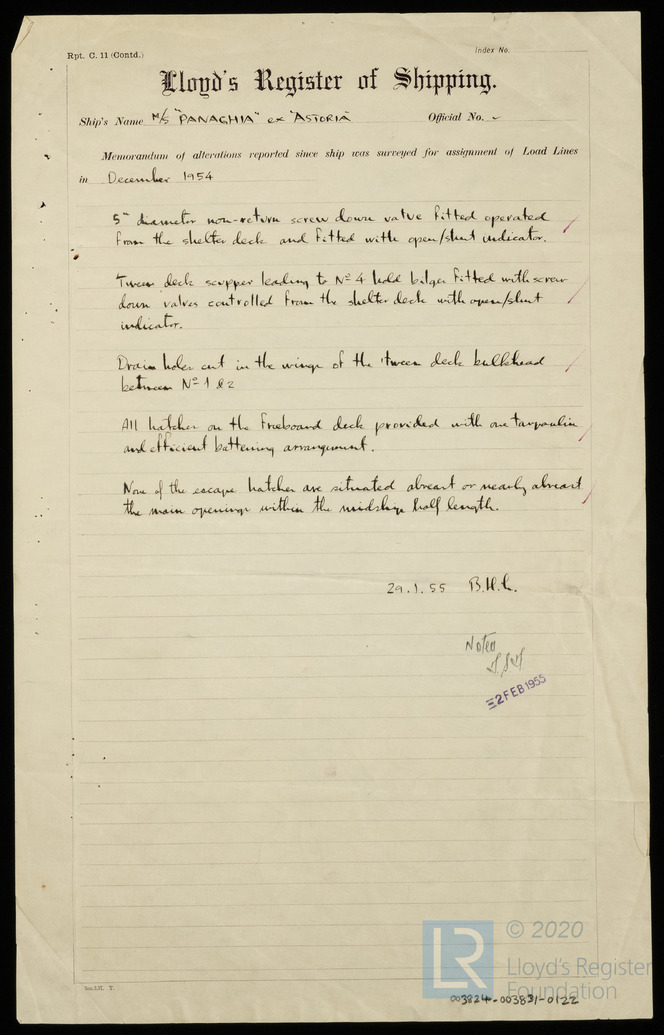 Rpt. C. 11 (Contd.)
Index No.
Lloyd's Register of Shipping.
Ship's Name M/S "PANAGHIA" ex "ASTORIA" Official No. -
Memorandum of alterations reported since ship was surveyed for assignment of Load Lines
in December 1954
5" diameter non-return screw down valve fitted operated
from the shelter deck and fitted with open/shut indicator.
Tween deck scupper leading to No 4 hold bilges fitted with screw
down valves controlled from the shelter deck with open/shut
indicator.
Drain holes cut in the wings of the 'tween deck bulkhead
between No 1 & 2
All hatches on the freeboard deck provided with one tarpaulin
and efficient battening arrangement.
None of the escape hatches are situated abreast or nearly abreast
the main openings within the midships half length.
29.1.55 B.H.
Noted
2 FEB 1955
© 2020
LR
Lloyd's Register
Foundation
003824-003831-0122